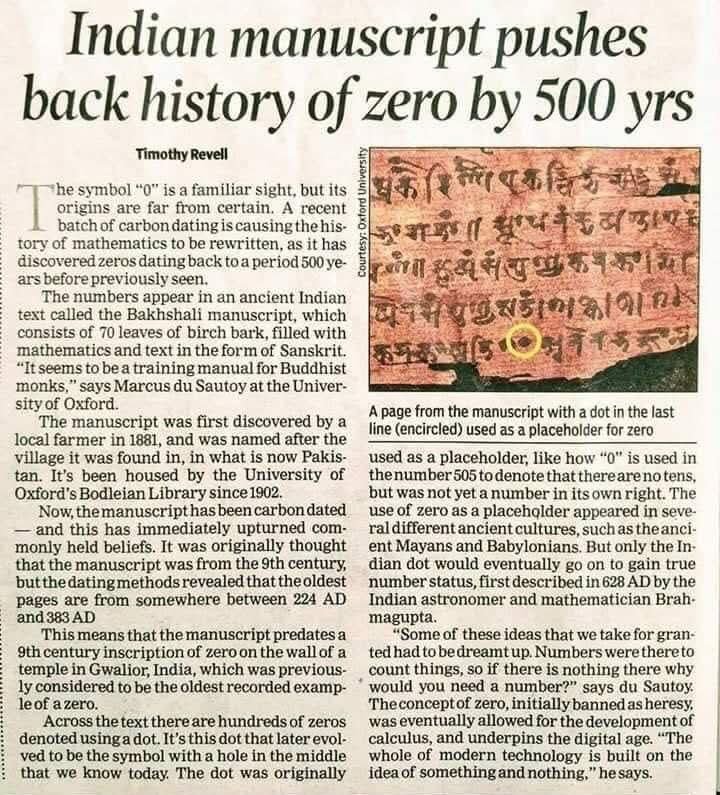 Indian manuscript pushes
back history of zero by 500 yrs
Timothy Revell
The symbol “0” is a familiar sight, but its
origins are far from certain. A recent
batch of carbon dating is causing the his-
tory of mathematics to be rewritten, as it has
discovered zeros dating back to a period 500 ye-
ars before previously seen.
The numbers appear in an ancient Indian
text called the Bakhshali manuscript, which
consists of 70 leaves of birch bark, filled with
mathematics and text in the form of Sanskrit.
“It seems to be a training manual for Buddhist
monks,” says Marcus du Sautoy at the Univer-
sity of Oxford.
The manuscript was first discovered by a
local farmer in 1881, and was named after the
village it was found in, in what is now Pakis-
tan. It’s been housed by the University of
Oxford’s Bodleian Library since 1902.
Now, the manuscript has been carbon dated
— and this has immediately upturned com-
monly held beliefs. It was originally thought
that the manuscript was from the 9th century,
but the dating methods revealed that the oldest
pages are from somewhere between 224 AD
and 383 AD
This means that the manuscript predates a
9th century inscription of zero on the wall of a
temple in Gwalior, India, which was previous-
ly considered to be the oldest recorded examp-
le of a zero.
Across the text there are hundreds of zeros
denoted using a dot. It’s this dot that later evol-
ved to be the symbol with a hole in the middle
that we know today. The dot was originally
Courtesy: Oxford University
A page from the manuscript with a dot in the last
line (encircled) used as a placeholder for zero
used as a placeholder, like how “0” is used in
the number 505 to denote that there are no tens,
but was not yet a number in its own right. The
use of zero as a placeholder appeared in seve-
ral different ancient cultures, such as the anci-
ent Mayans and Babylonians. But only the In-
dian dot would eventually go on to gain true
number status, first described in 628 AD by the
Indian astronomer and mathematician Brah-
magupta.
“Some of these ideas that we take for gran-
ted had to be dreamt up. Numbers were there to
count things, so if there is nothing there why
would you need a number?” says du Sautoy.
The concept of zero, initially banned as heresy,
was eventually allowed for the development of
calculus, and underpins the digital age. “The
whole of modern technology is built on the
idea of something and nothing,” he says.